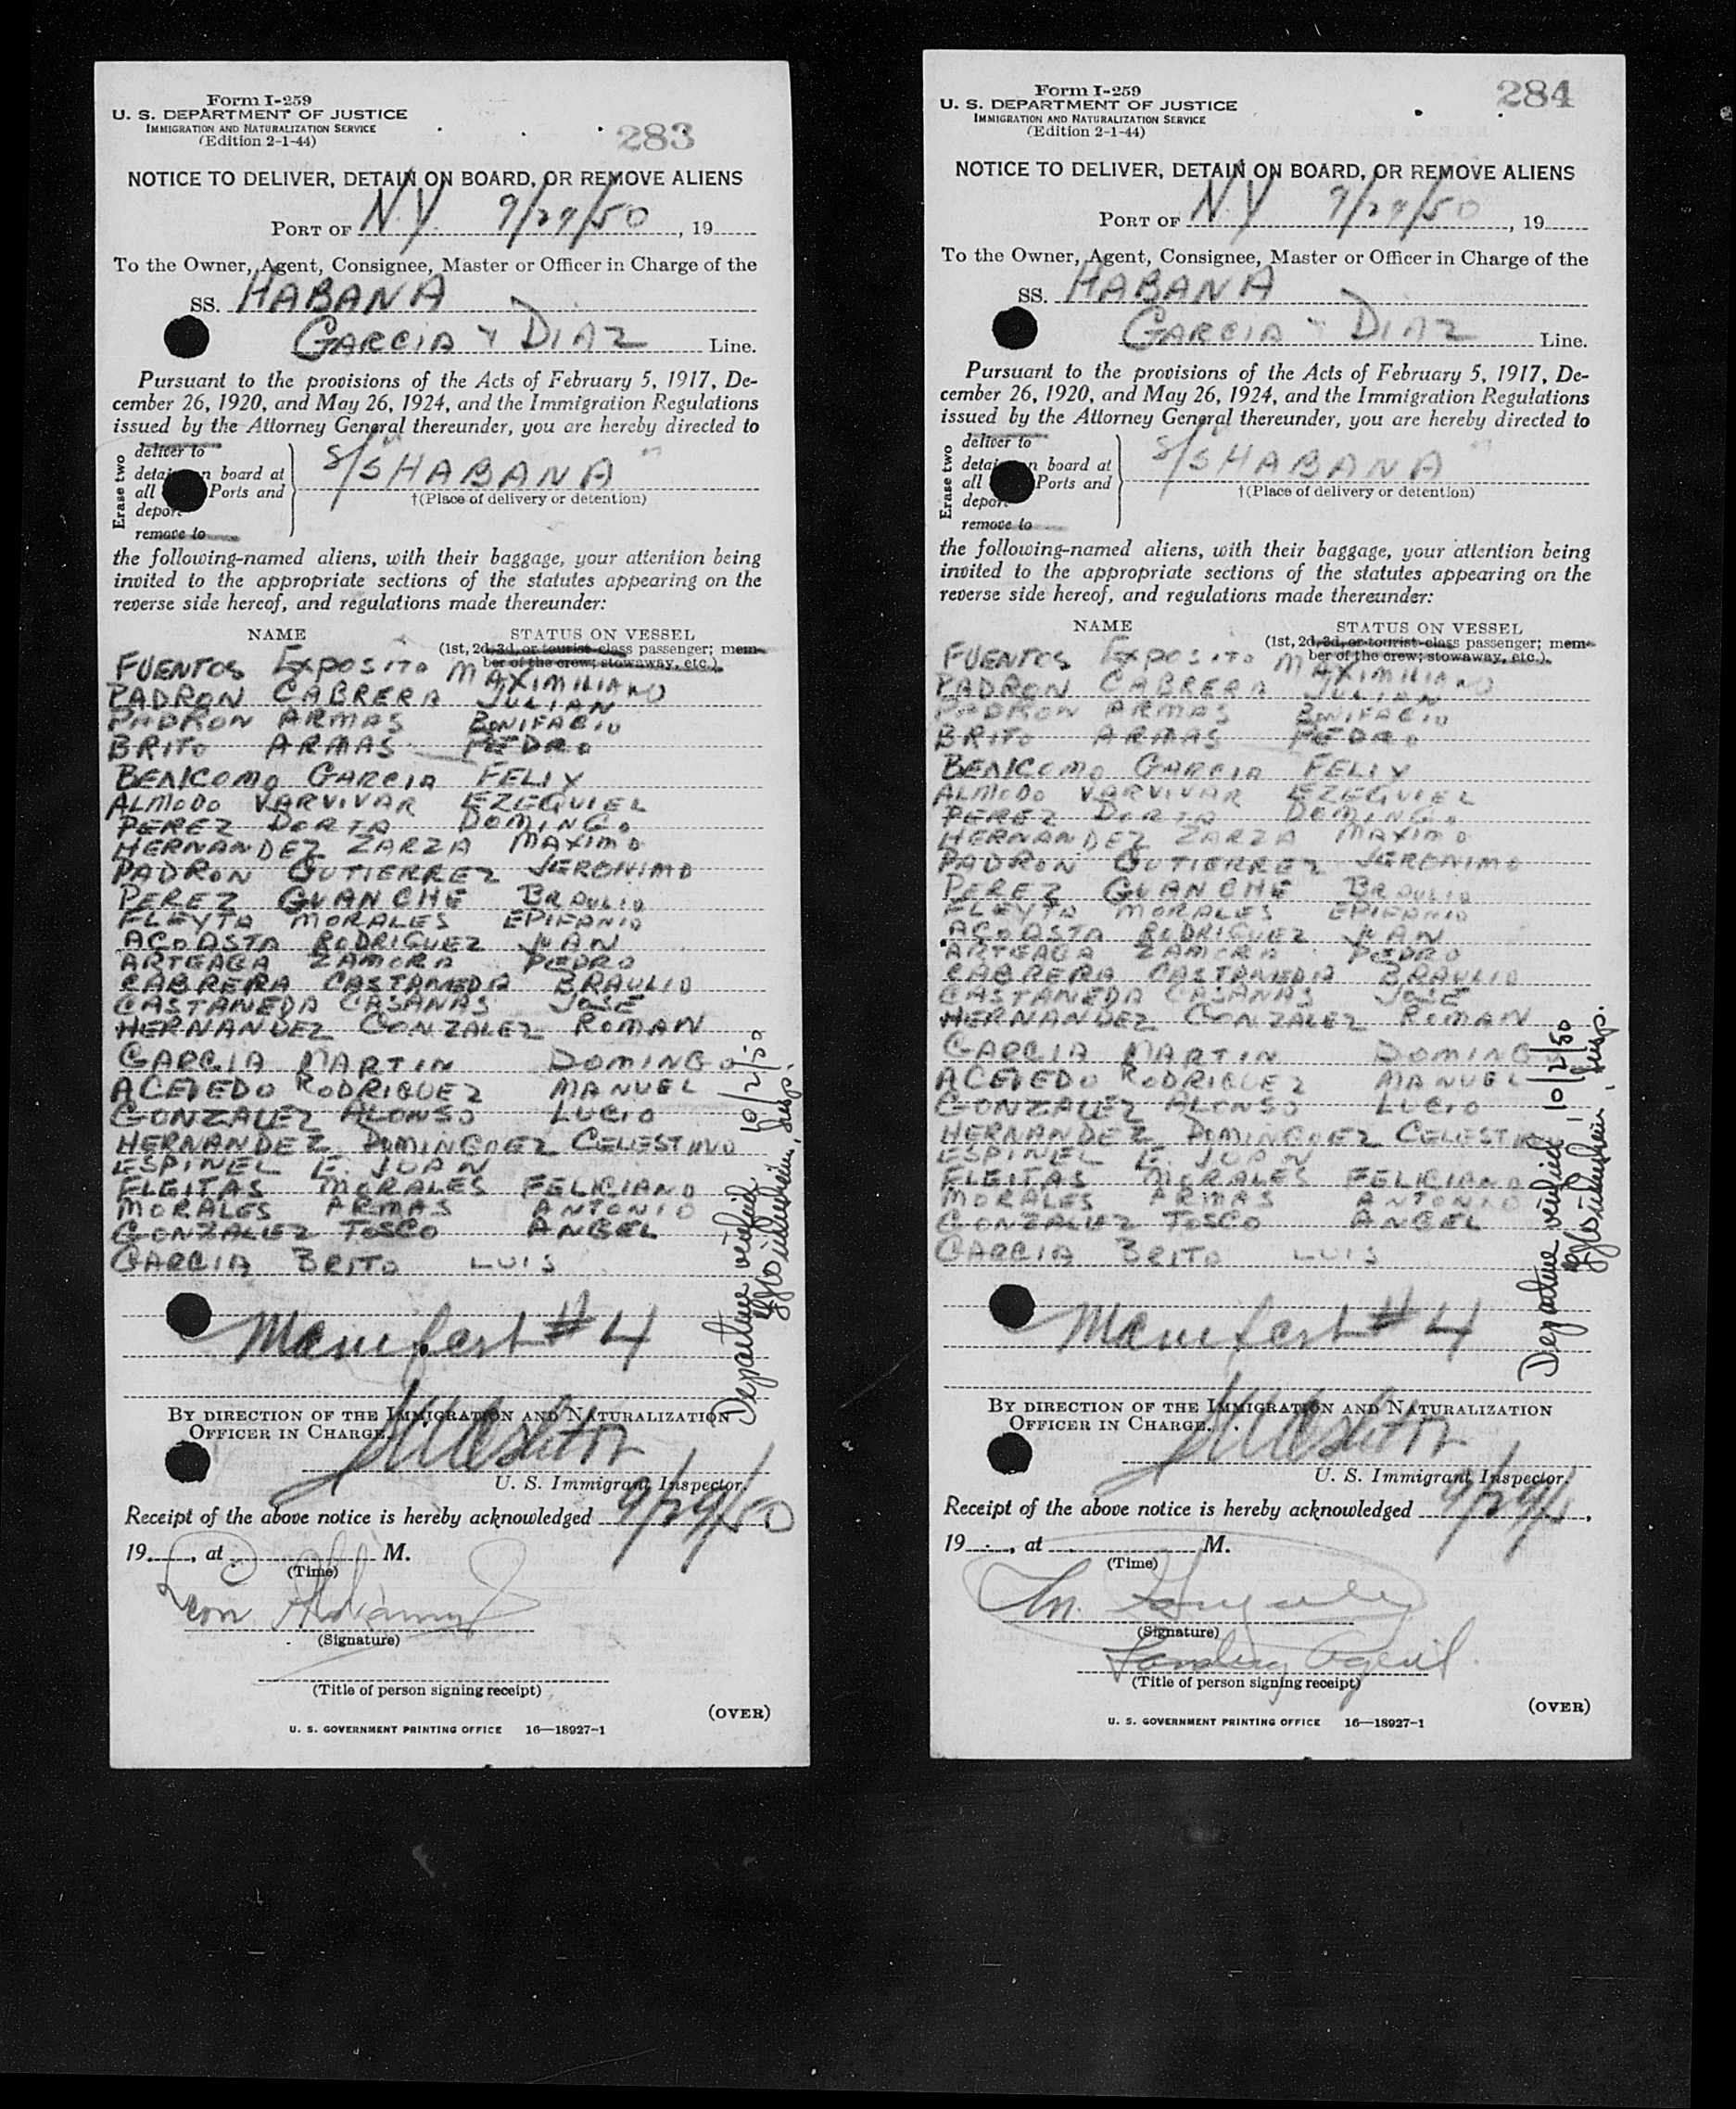 Form I-259
U. S. DEPARTMENT OF JUSTICE
IMMIGRATION AND NATURALIZATION SERVICE
(Edition 2-1-44)
283
NOTICE TO DELIVER, DETAIN ON BOARD, OR REMOVE ALIENS
PORT OF N.Y. 9/29/50, 19
To the Owner, Agent, Consignee, Master or Officer in Charge of the
SS. HABANA
GARCIA Y DIAZ Line.
Pursuant to the provisions of the Acts of February 5, 1917, De-
cember 26, 1920, and May 26, 1924, and the Immigration Regulations
issued by the Attorney General thereunder, you are hereby directed to
Erase two
deliver to
detain on board at
all Ports and
deport
remove to
S/S HABANA
†(Place of delivery or detention)
the following-named aliens, with their baggage, your attention being
invited to the appropriate sections of the statutes appearing on the
reverse side hereof, and regulations made thereunder:
NAME STATUS ON VESSEL
(1st, 2d, 3d, or tourist-class passenger; mem-
ber of the crew; stowaway, etc.).
FUENTOS EXPOSITO MAXIMILIANO
PADRON CABRERA JULIAN
PADRON ARMAS BONIFACIO
BRITO ARMAS PEDRO
BENICOMO GARCIA FELIX
ALMODO VARVIVAR EZEQUIEL
PEREZ DORTA DOMINGO
HERNANDEZ ZARZA MAXIMO
PADRON GUTIERREZ JERONIMO
PEREZ GUANCHE BRAULIO
FLEYTA MORALES EPIFANIO
ACOASTA RODRIGUEZ JUAN
ARTEAGA ZAMORA PEDRO
CABRERA CASTANEDA BRAULIO
CASTANEDA CASANAS JOSE
HERNANDEZ GONZALEZ ROMAN
GARCIA MARTIN DOMINGO
ACEVEDO RODRIGUEZ MANUEL
GONZALEZ ALONSO LUCIO
HERNANDEZ DOMINGOEZ CELESTINO
ESPINEL E. JUAN
FLEITAS MORALES FELICIANO
MORALES ARMAS ANTONIO
GONZALEZ TOSCO ANGEL
GARCIA BRITO LUIS
Manifest #4
Departure verified 10/2/50
Insp.
BY DIRECTION OF THE IMMIGRATION AND NATURALIZATION
OFFICER IN CHARGE.
U. S. Immigrant Inspector.
Receipt of the above notice is hereby acknowledged 9/29/50
19, at M.
(Time)
(Signature)
(Title of person signing receipt)
(OVER)
U. S. GOVERNMENT PRINTING OFFICE 16—18927-1
Form I-259
U. S. DEPARTMENT OF JUSTICE
IMMIGRATION AND NATURALIZATION SERVICE
(Edition 2-1-44)
284
NOTICE TO DELIVER, DETAIN ON BOARD, OR REMOVE ALIENS
PORT OF N.Y 9/29/50, 19
To the Owner, Agent, Consignee, Master or Officer in Charge of the
SS. HABANA
GARCIA Y DIAZ Line.
Pursuant to the provisions of the Acts of February 5, 1917, De-
cember 26, 1920, and May 26, 1924, and the Immigration Regulations
issued by the Attorney General thereunder, you are hereby directed to
Erase two
deliver to
detain on board at
all Ports and
deport
remove to
S/S HABANA
†(Place of delivery or detention)
the following-named aliens, with their baggage, your attention being
invited to the appropriate sections of the statutes appearing on the
reverse side hereof, and regulations made thereunder:
NAME STATUS ON VESSEL
(1st, 2d, 3d, or tourist-class passenger; mem-
ber of the crew; stowaway, etc.).
FUENTOS EXPOSITO MAXIMILIANO
PADRON CABRERA JULIAN
PADRON ARMAS BONIFACIO
BRITO ARMAS PEDRO
BENICOMO GARCIA FELIX
ALMODO VARVIVAR EZEQUIEL
PEREZ DORTA DOMINGO
HERNANDEZ ZARZA MAXIMO
PADRON GUTIERREZ JERONIMO
PEREZ GUANCHE BRAULIO
FLEYTA MORALES EPIFANIO
ACOASTA RODRIGUEZ JUAN
ARTEAGA ZAMORA PEDRO
CABRERA CASTANEDA BRAULIO
CASTANEDA CASANAS JOSE
HERNANDEZ GONZALEZ ROMAN
GARCIA MARTIN DOMINGO
ACEVEDO RODRIGUEZ MANUEL
GONZALEZ ALONSO LUCIO
HERNANDEZ DOMINGOEZ CELESTINO
ESPINEL E. JUAN
FLEITAS MORALES FELICIANO
MORALES ARMAS ANTONIO
GONZALEZ TOSCO ANGEL
GARCIA BRITO LUIS
Manifest #4
Departure verified 10/2/50
Insp.
BY DIRECTION OF THE IMMIGRATION AND NATURALIZATION
OFFICER IN CHARGE.
U. S. Immigrant Inspector.
Receipt of the above notice is hereby acknowledged 9/29/,
19, at M.
(Time)
(Signature)
Landing Agent.
(Title of person signing receipt)
(OVER)
U. S. GOVERNMENT PRINTING OFFICE 16—18927-1